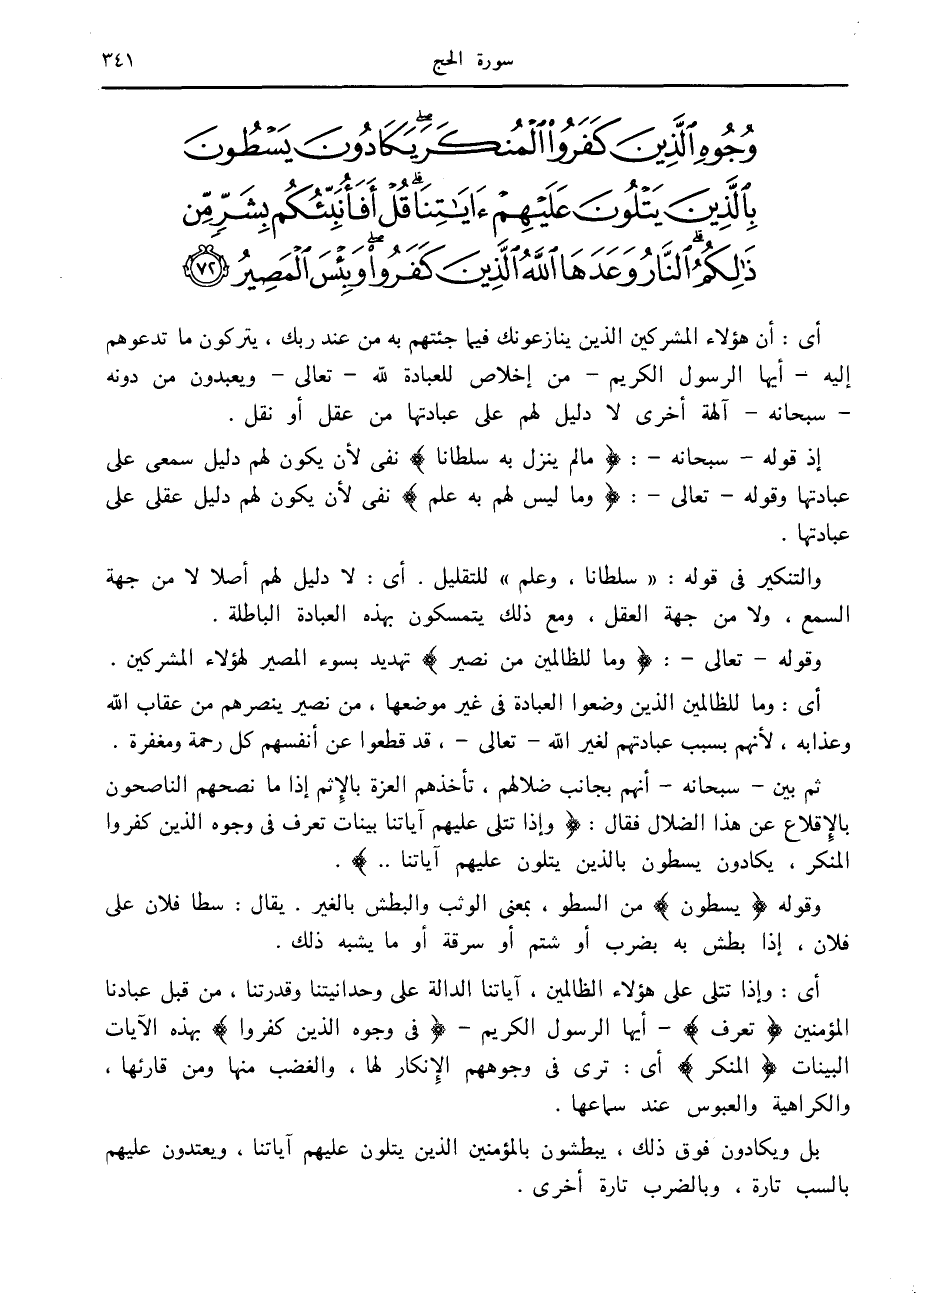 سورة الحج
٣٤١
وُجُوهِ ٱلَّذِينَ كَفَرُوا۟ ٱلْمُنكَرَ ۖ يَكَادُونَ يَسْطُونَ
بِٱلَّذِينَ يَتْلُونَ عَلَيْهِمْ ءَايَٰتِنَا ۗ قُلْ أَفَأُنَبِّئُكُم بِشَرٍّ مِّن
ذَٰلِكُمُ ۗ ٱلنَّارُ وَعَدَهَا ٱللَّهُ ٱلَّذِينَ كَفَرُوا۟ ۖ وَبِئْسَ ٱلْمَصِيرُ ﴿٧٢﴾
أى : أن هؤلاء المشركين الذين ينازعونك فيما جئتهم به من عند ربك ، يتركون ما تدعوهم
إليه – أيها الرسول الكريم – من إخلاص للعبادة لله – تعالى – ويعبدون من دونه
– سبحانه – آلهة أخرى لا دليل لهم على عبادتها من عقل أو نقل .
إذ قوله – سبحانه – : ﴿ مالم ينزل به سلطانا ﴾ نفى لأن يكون لهم دليل سمعى على
عبادتها وقوله – تعالى – : ﴿ وما ليس لهم به علم ﴾ نفى لأن يكون لهم دليل عقلى على
عبادتها .
والتنكير فى قوله : « سلطانا ، وعلم » للتقليل . أى : لا دليل لهم أصلا لا من جهة
السمع ، ولا من جهة العقل ، ومع ذلك يتمسكون بهذه العبادة الباطلة .
وقوله – تعالى – : ﴿ وما للظالمين من نصير ﴾ تهديد بسوء المصير لهؤلاء المشركين .
أى : وما للظالمين الذين وضعوا العبادة فى غير موضعها ، من نصير ينصرهم من عقاب الله
وعذابه ، لأنهم بسبب عبادتهم لغير الله – تعالى – ، قد قطعوا عن أنفسهم كل رحمة ومغفرة .
ثم بين – سبحانه – أنهم بجانب ضلالهم ، تأخذهم العزة بالإثم إذا ما نصحهم الناصحون
بالإقلاع عن هذا الضلال فقال : ﴿ وإذا تتلى عليهم آياتنا بينات تعرف فى وجوه الذين كفروا
المنكر ، يكادون يسطون بالذين يتلون عليهم آياتنا .. ﴾ .
وقوله ﴿ يسطون ﴾ من السطو ، بمعنى الوثب والبطش بالغير . يقال : سطا فلان على
فلان ، إذا بطش به بضرب أو شتم أو سرقة أو ما يشبه ذلك .
أى : وإذا تتلى على هؤلاء الظالمين ، آياتنا الدالة على وحدانيتنا وقدرتنا ، من قبل عبادنا
المؤمنين ﴿ تعرف ﴾ – أيها الرسول الكريم – ﴿ فى وجوه الذين كفروا ﴾ بهذه الآيات
البينات ﴿ المنكر ﴾ أى : ترى فى وجوههم الإنكار لها ، والغضب منها ومن قارئها ،
والكراهية والعبوس عند سماعها .
بل ويكادون فوق ذلك ، يبطشون بالمؤمنين الذين يتلون عليهم آياتنا ، ويعتدون عليهم
بالسب تارة ، وبالضرب تارة أخرى .